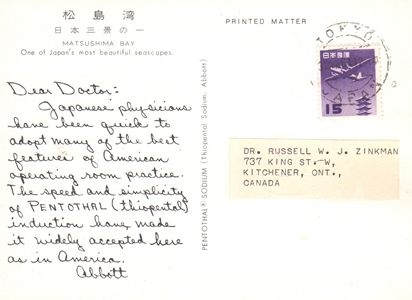 松島湾
日本三景の一
MATSUSHIMA BAY
One of Japan's most beautiful seascapes.
Dear Doctor:
Japanese physicians
have been quick to
adopt many of the best
features of American
operating room practice.
The speed and simplicity
of PENTOTHAL (thiopental)
induction have made
it widely accepted here
as in America.
Abbott
PENTOTHAL® SODIUM (Thiopental Sodium, Abbott)
PRINTED MATTER
TOKYO
日本郵便
15
DR. RUSSELL W. J. ZINKMAN
737 KING ST. W,
KITCHENER, ONT.,
CANADA